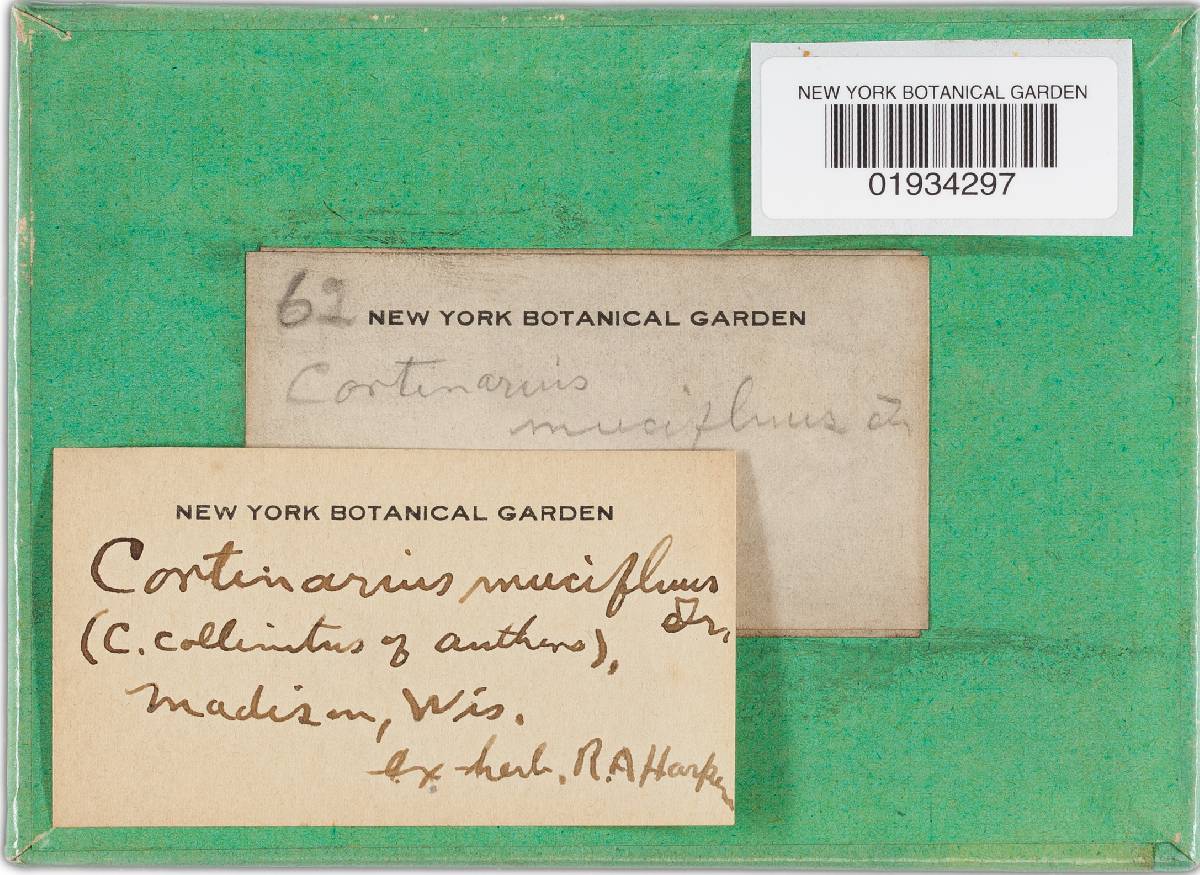 NEW YORK BOTANICAL GARDEN
01934297
62
NEW YORK BOTANICAL GARDEN
Cortinarius
mucifluus Fr
NEW YORK BOTANICAL GARDEN
Cortinarius mucifluus
Fr.
(C. collinitus of authors),
Madison, Wis.
ex herb. R. A Harper